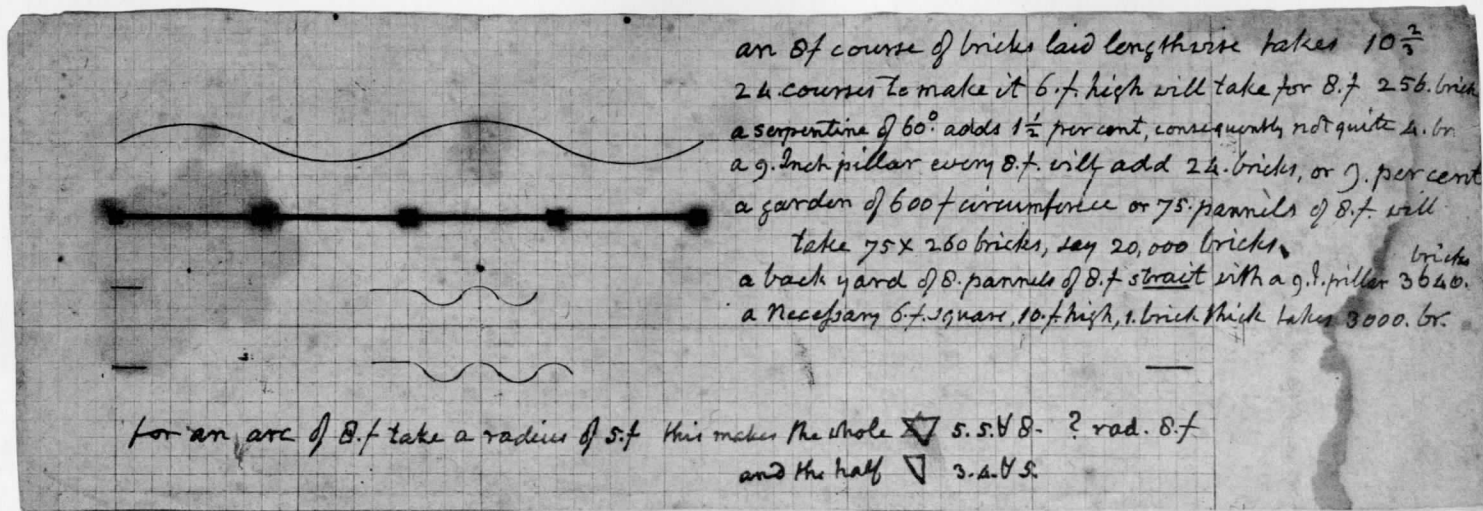 an 8f course of bricks laid lengthwise takes 10 2/3
24. courses to make it 6.f. high will take for 8.f 256. brick
a serpentine of 60°. adds 1 1/2 per cent, consequently not quite 4. br.
a 9. Inch pillar every 8.f. will add 24. bricks, or 9. per cent
a garden of 600f circumference or 75. pannels of 8.f. will
take 75 x 260 bricks, say 20,000 bricks.
a back yard of 8. pannels of 8.f strait with a 9.I. pillar 3640. bricks
a Necessary 6.f. square, 10.f. high, 1. brick thick takes 3000. br.
for an arc of 8.f take a radius of 5.f this makes the whole 5. 5. & 8. ? rad. 8.f
and the half 3. 4. & 5.